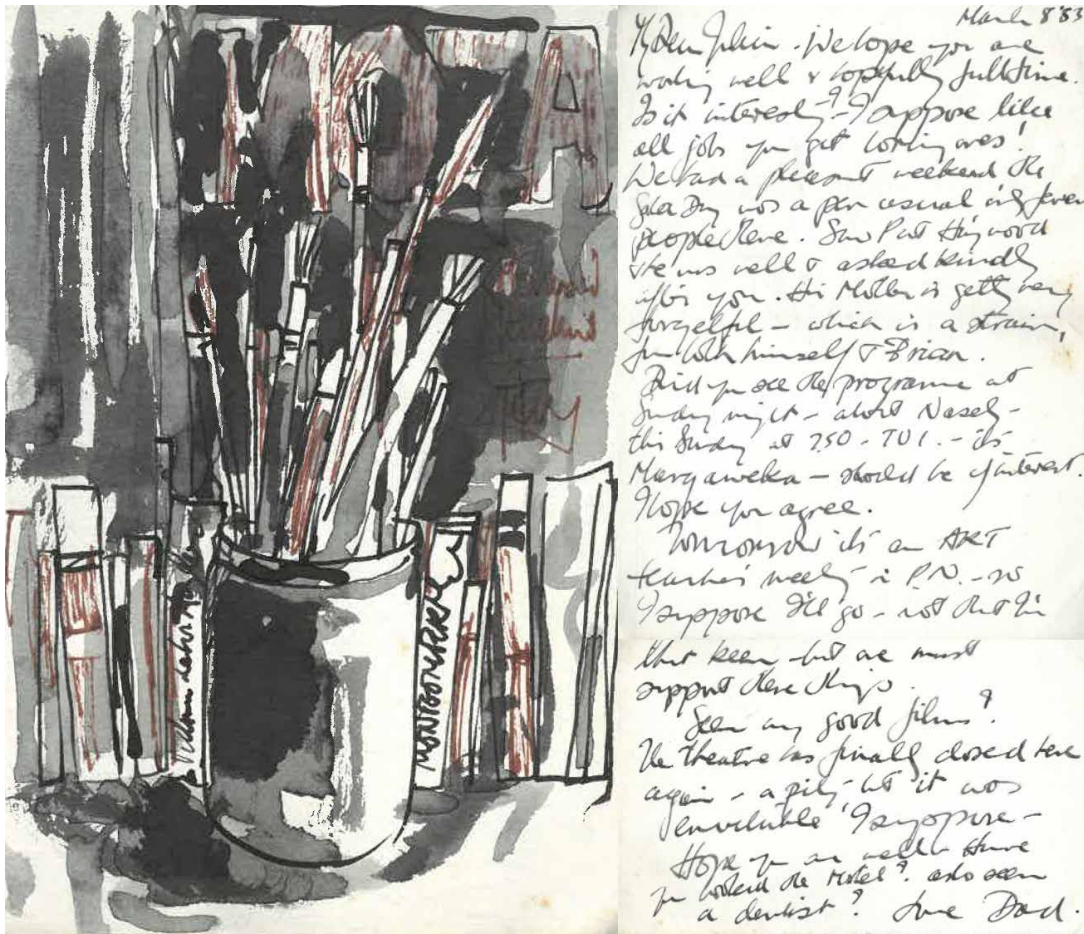 MONTGOMERY
March 8 '83
My Dear Julian. We hope you are
working well & hopefully fulltime.
Is it interesting? I suppose like
all jobs you get boring ones!
We had a pleasant weekend the
Gala Day was a per usual only fewer
people there. Saw Pat Haywood
he was well & asked kindly
after you. His Mother is getting very
forgetful – which is a strain,
for both himself & Brian.
Did you see the programme at
Sunday night – about
this Sunday at 7.50 – TV1. – it's
– should be of interest
I hope you agree.
Tomorrow it's an ART
teacher's meeting in P.N. – so
I suppose I'll go – not that I'm
that keen – but we must
support these things.
Seen any good films?
The theatre has finally closed here
again – a pity – but it was
I suppose –
Hope you are well & have
you booked the Motel? also seen
a dentist? Love Dad.